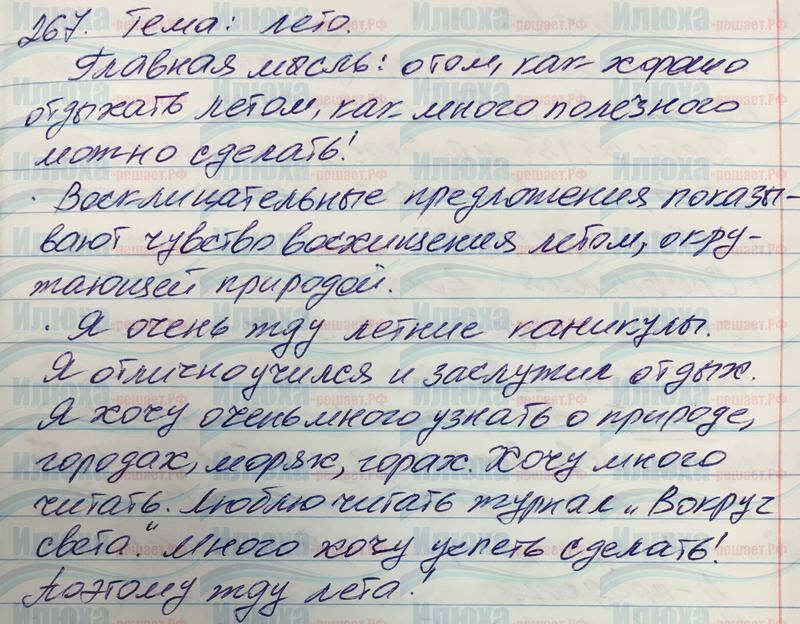 267. Тема: лето.
Главная мысль: о том, как хорошо
отдыхать летом, как много полезного
можно сделать!
· Восклицательные предложения показы-
вают чувство восхищения летом, окру-
жающей природой.
· Я очень жду летние каникулы.
Я отлично учился и заслужил отдых.
Я хочу очень много узнать о природе,
городах, морях, горах. Хочу много
читать. Люблю читать журнал „Вокруг
света." Много хочу успеть сделать!
Поэтому жду лета!